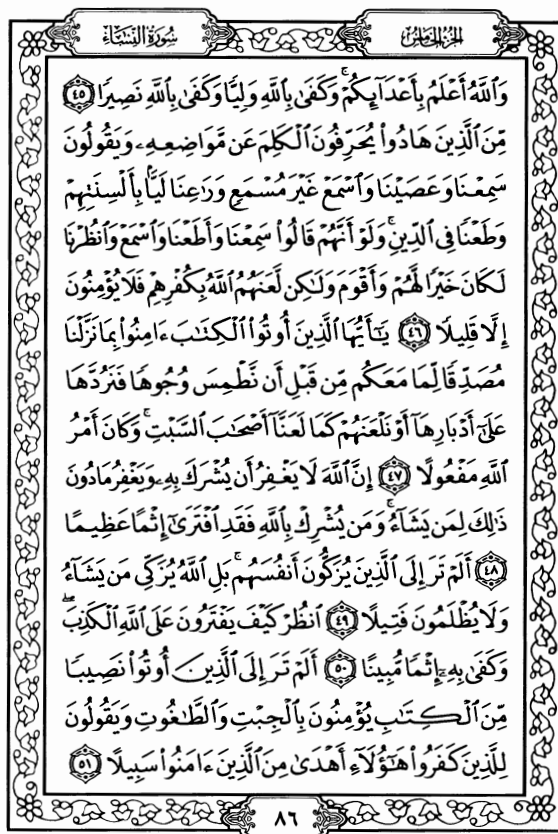 سُورَةُ النِّسَاءِ
الجُزْءُ الخَامِسُ
وَٱللَّهُ أَعۡلَمُ بِأَعۡدَآئِكُمۡۚ وَكَفَىٰ بِٱللَّهِ وَلِيّٗا وَكَفَىٰ بِٱللَّهِ نَصِيرٗا ٤٥
مِّنَ ٱلَّذِينَ هَادُواْ يُحَرِّفُونَ ٱلۡكَلِمَ عَن مَّوَاضِعِهِۦ وَيَقُولُونَ
سَمِعۡنَا وَعَصَيۡنَا وَٱسۡمَعۡ غَيۡرَ مُسۡمَعٖ وَرَٰعِنَا لَيَّۢا بِأَلۡسِنَتِهِمۡ
وَطَعۡنٗا فِي ٱلدِّينِۚ وَلَوۡ أَنَّهُمۡ قَالُواْ سَمِعۡنَا وَأَطَعۡنَا وَٱسۡمَعۡ وَٱنظُرۡنَا
لَكَانَ خَيۡرٗا لَّهُمۡ وَأَقۡوَمَ وَلَٰكِن لَّعَنَهُمُ ٱللَّهُ بِكُفۡرِهِمۡ فَلَا يُؤۡمِنُونَ
إِلَّا قَلِيلٗا ٤٦ يَٰٓأَيُّهَا ٱلَّذِينَ أُوتُواْ ٱلۡكِتَٰبَ ءَامِنُواْ بِمَا نَزَّلۡنَا
مُصَدِّقٗا لِّمَا مَعَكُم مِّن قَبۡلِ أَن نَّطۡمِسَ وُجُوهٗا فَنَرُدَّهَا
عَلَىٰٓ أَدۡبَارِهَآ أَوۡ نَلۡعَنَهُمۡ كَمَا لَعَنَّآ أَصۡحَٰبَ ٱلسَّبۡتِۚ وَكَانَ أَمۡرُ
ٱللَّهِ مَفۡعُولًا ٤٧ إِنَّ ٱللَّهَ لَا يَغۡفِرُ أَن يُشۡرَكَ بِهِۦ وَيَغۡفِرُ مَا دُونَ
ذَٰلِكَ لِمَن يَشَآءُۚ وَمَن يُشۡرِكۡ بِٱللَّهِ فَقَدِ ٱفۡتَرَىٰٓ إِثۡمًا عَظِيمًا
٤٨ أَلَمۡ تَرَ إِلَى ٱلَّذِينَ يُزَكُّونَ أَنفُسَهُمۚ بَلِ ٱللَّهُ يُزَكِّي مَن يَشَآءُ
وَلَا يُظۡلَمُونَ فَتِيلًا ٤٩ ٱنظُرۡ كَيۡفَ يَفۡتَرُونَ عَلَى ٱللَّهِ ٱلۡكَذِبَۖ
وَكَفَىٰ بِهِۦٓ إِثۡمٗا مُّبِينًا ٥٠ أَلَمۡ تَرَ إِلَى ٱلَّذِينَ أُوتُواْ نَصِيبٗا
مِّنَ ٱلۡكِتَٰبِ يُؤۡمِنُونَ بِٱلۡجِبۡتِ وَٱلطَّٰغُوتِ وَيَقُولُونَ
لِلَّذِينَ كَفَرُواْ هَٰٓؤُلَآءِ أَهۡدَىٰ مِنَ ٱلَّذِينَ ءَامَنُواْ سَبِيلًا ٥١
٨٦